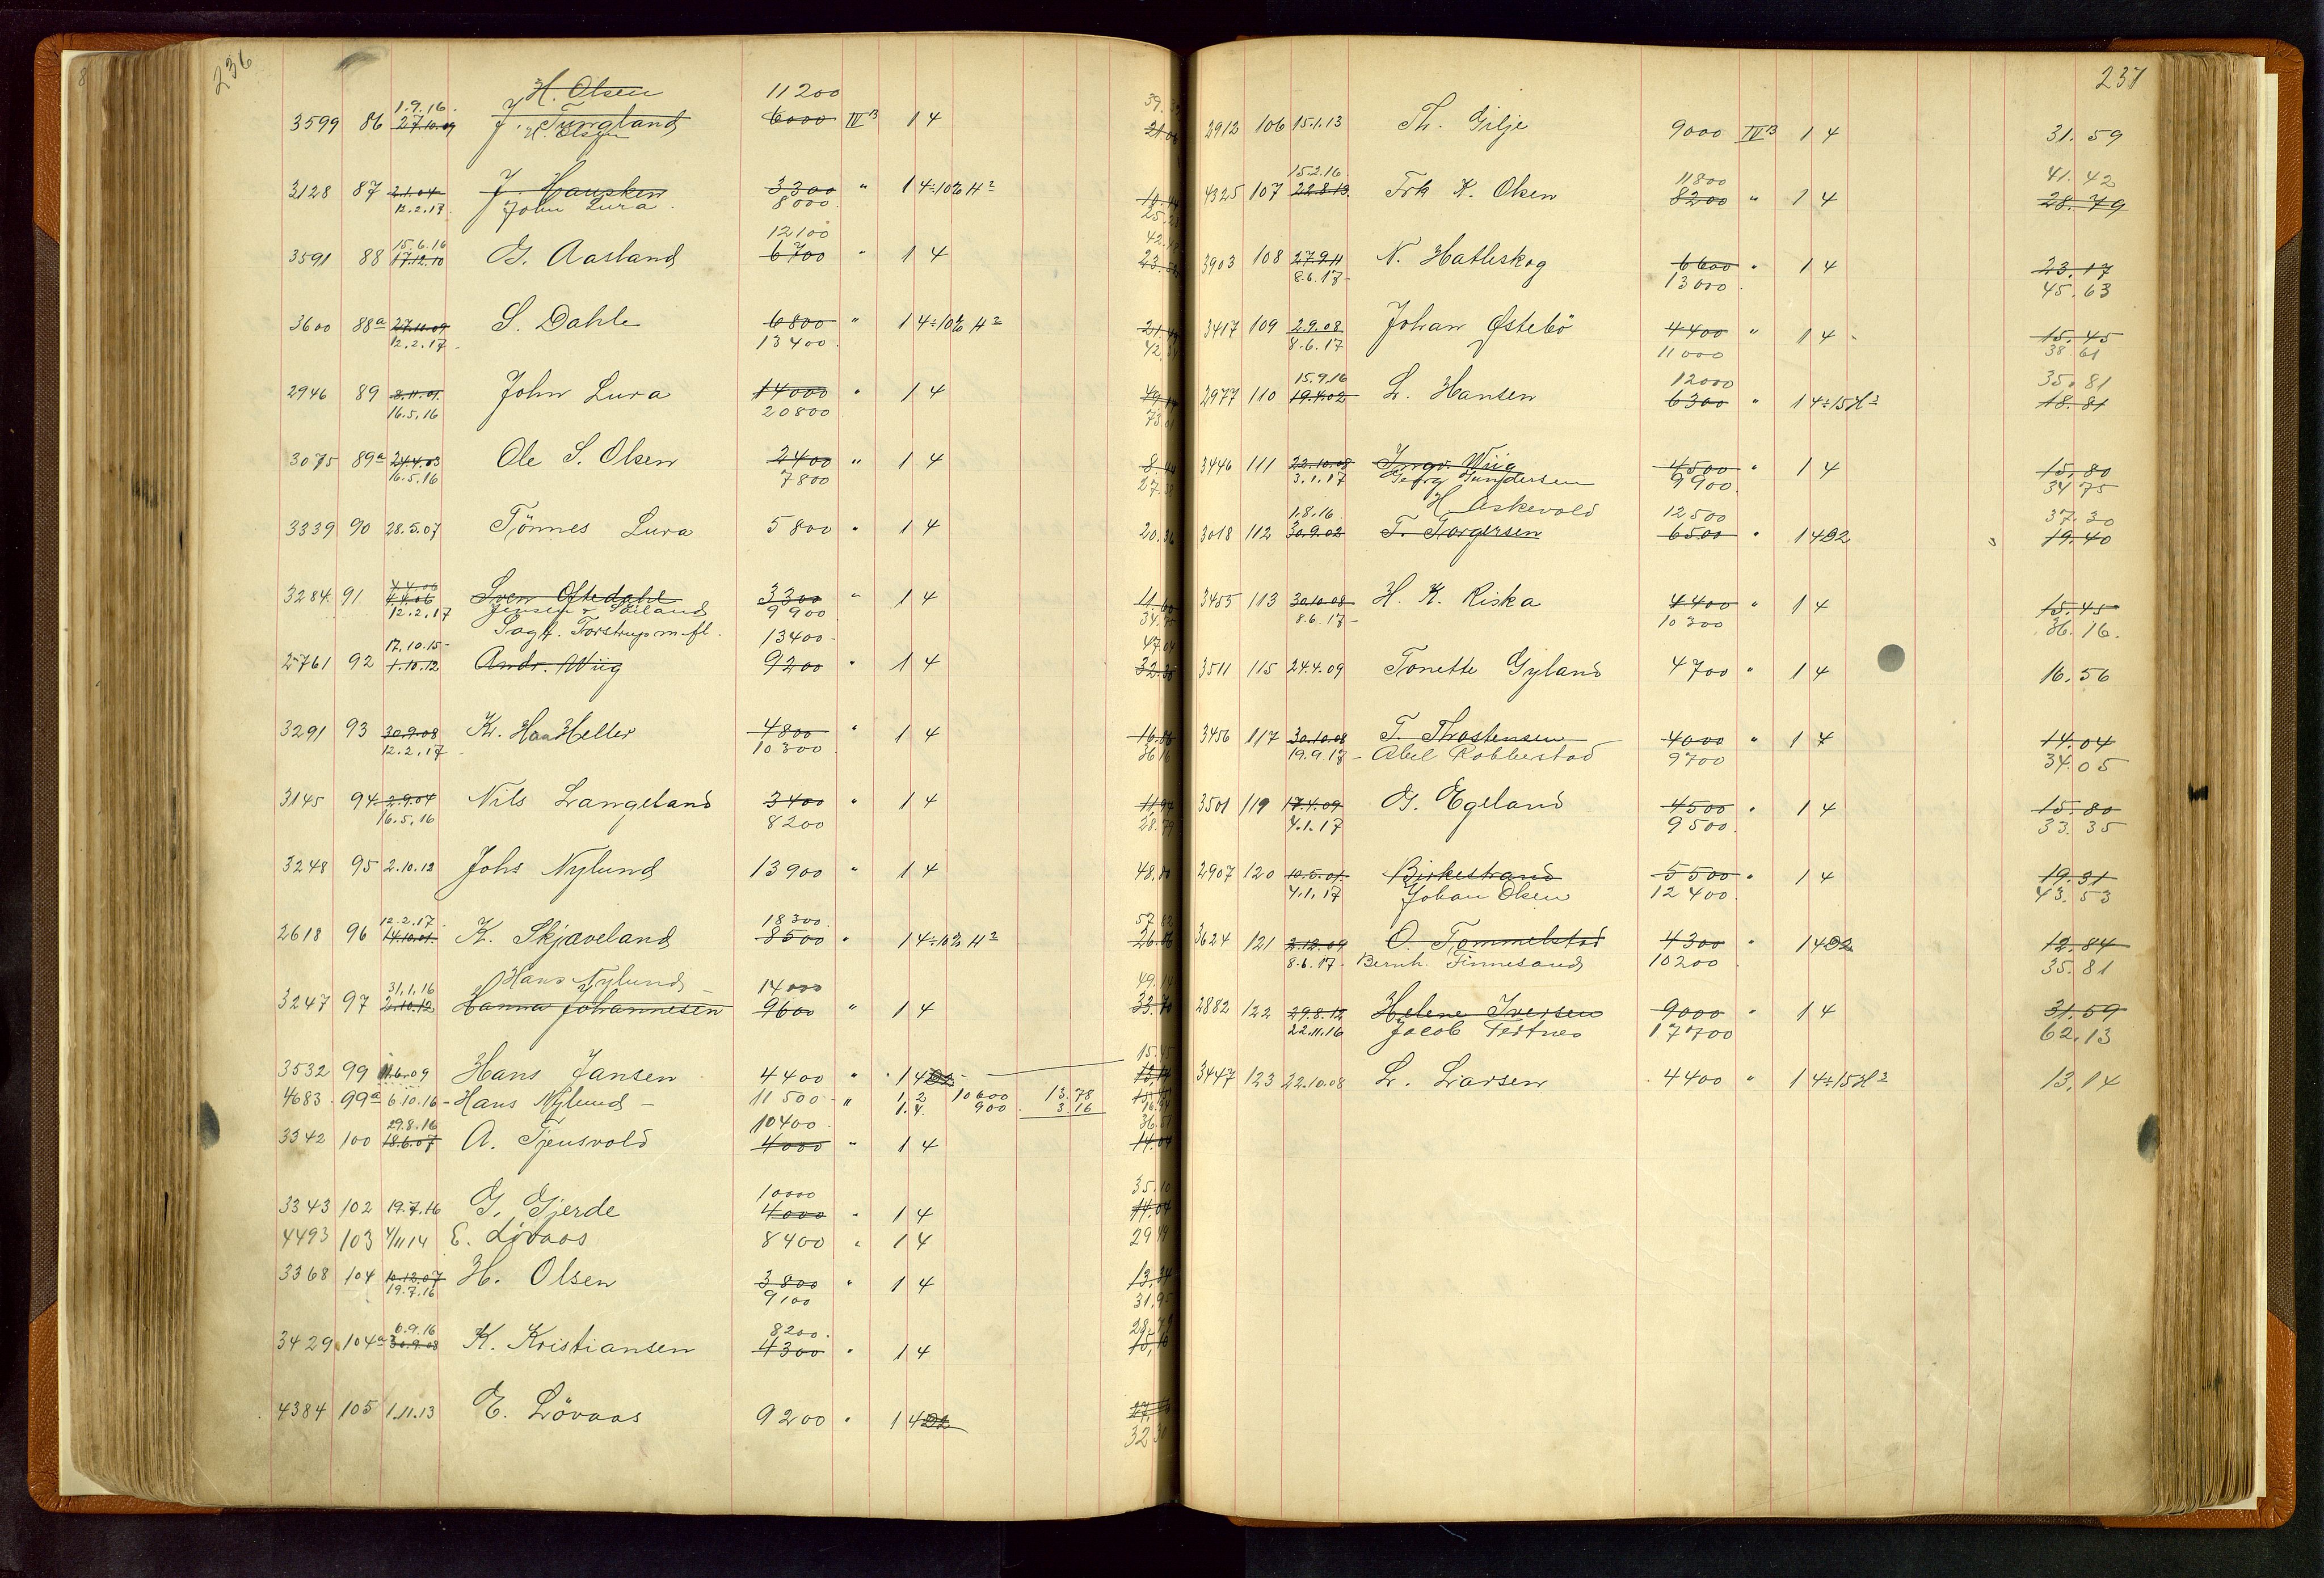 236
H. Olsen 11200
1.9.16.
3599 86 27.10.09 J. Tungland 6000 IV B 1 4
H. Olsen
3128 87 2.1.04 J. Hausken 3300 " 1 4 ÷ 10% H²
12.2.17. John Lura. 8000.
15.6.16 12100
3591 88 17.12.10 G. Aasland 6700 " 1 4
3600 88a 27.10.09 S. Dahle 6800 " 1 4 ÷ 10% H²
12.2.17. 13400.
2946 89 8.11.01. John Lura 14000 " 1 4
16.5.16 20800
3075 89a 24.4.03 Ole S. Olsen 2400 " 1 4
16.5.16 7800
3339 90 28.5.07 Tönnes Lura 5800 " 1 4
3284 91 4.4.06 Sven Oftedahl 3300 " 1 4
12.2.17 9900
17.10.15- Sagf. Torstrup m fl. 13400-
2761 92 1.10.12 Andr. Wiig 9200 " 1 4
3291 93 30.9.08 K. Haa Heller 4800 " 1 4
12.2.17 10300
3145 94 2.9.04 Nils Langeland 3400 " 1 4
16.5.16 8200
3248 95 2.10.12 Johs Nylund 13900 " 1 4
12.2.17- 18300.
2618 96 14.10.01. K. Skjæveland 8500 " 1 4 ÷ 10% H²
31.1.16 Hans Nylund- 14000
3247 97 2.10.12 Hanna Johannesen 9600 " 1 4
3532 99 11.6.09 Hans Jansen 4400 " 1 4
4683 99a 6.10.16 - Hans Nylund - 11500 " 1.2 10600 13.78
1.4. 900 3.16
29.8.16 10400.
3342 100 18.6.07 A. Tjensvold 4000 " 1 4
10000
3343 102 19.7.16 G. Gjerde 4000 " 1 4
4493 103 4/11 14 E. Lövaas 8400 " 1 4
3368 104 10.12.07 H. Olsen 3800 " 1 4
19.7.16 9100
6.9.16 8200.
3429 104a 30.9.08 K. Kristiansen 4300 " 1 4
4384 105 1.11.13 E. Lövaas 9200 " 1 4
237
2912 106 15.1.13 Th. Gilje 9000 IV B 1 4 31.59
15.2.16 11800 41.42
4325 107 22.8.13. Frk K. Olsen 8200 " 1 4 28.79
3903 108 27.9.11 N. Hatleskog 6600 " 1 4 23.17
8.6.17- 13000. 45.63
3417 109 2.9.08 Johan Østebö 4400 " 1 4 15.45
8.6.17 11000 38.61
15.9.16 12000 35.81
2977 110 19.4.02 L. Hansen 6300 " 1 4 ÷ 15 H² 18.81
3446 111 22.10.08 Ingv. Wiig 4500 " 1 4 15.80
3.1.17 Georg Gundersen 9900. 34.75
1.8.16. H. Askevold 12500 37.30
3018 112 30.9.02 T. Torgersen 6500 " 1 4 D2 19.40
3455 113 30.10.08 H. K. Riska 4400 " 1 4 15.45
8.6.17- 10300 36.16.
3511 115 24.4.09 Tonette Gyland 4700 " 1 4 16.56
3456 117 30.10.08 T. Throstensen 4000 " 1 4 14.04
19.9.17- Abel Robbestad 9700 34.05
3501 119 17.4.09 G. Egeland 4500 " 1 4 15.80
4.1.17 9500. 33.35
2907 120 10.5.01. Birkestrand 5500 " 1 4 19.31
4.1.17 Johan Olsen 12400. 43.53
3624 121 2.12.09 O. Tommelstad 4300 " 1 4 D2 12.84
8.6.17- Bernh. Finnesand 10200 35.81
2882 122 29.8.12 Helene Iversen 9000 " 1 4 31.59
22.11.16 Jacob 17700 62.13
3447 123 22.10.08 L. Larsen 4400 " 1 4 ÷ 15 H² 13.14